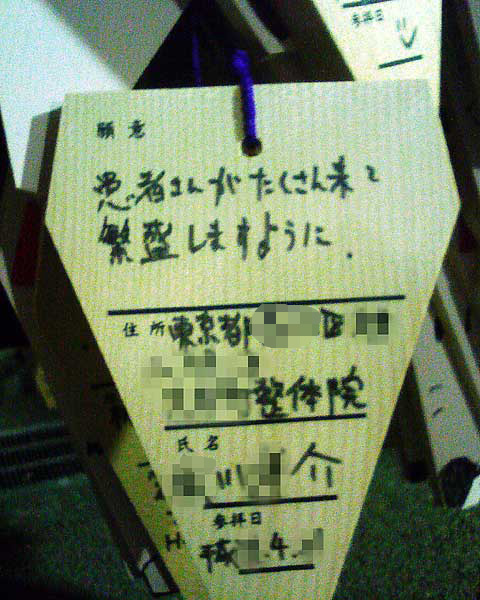 参拝日
願意
患者さんがたくさん来て
繁盛しますように.
住所 東京都 区
整体院
氏名
川 介
参拝日
平成 .4.